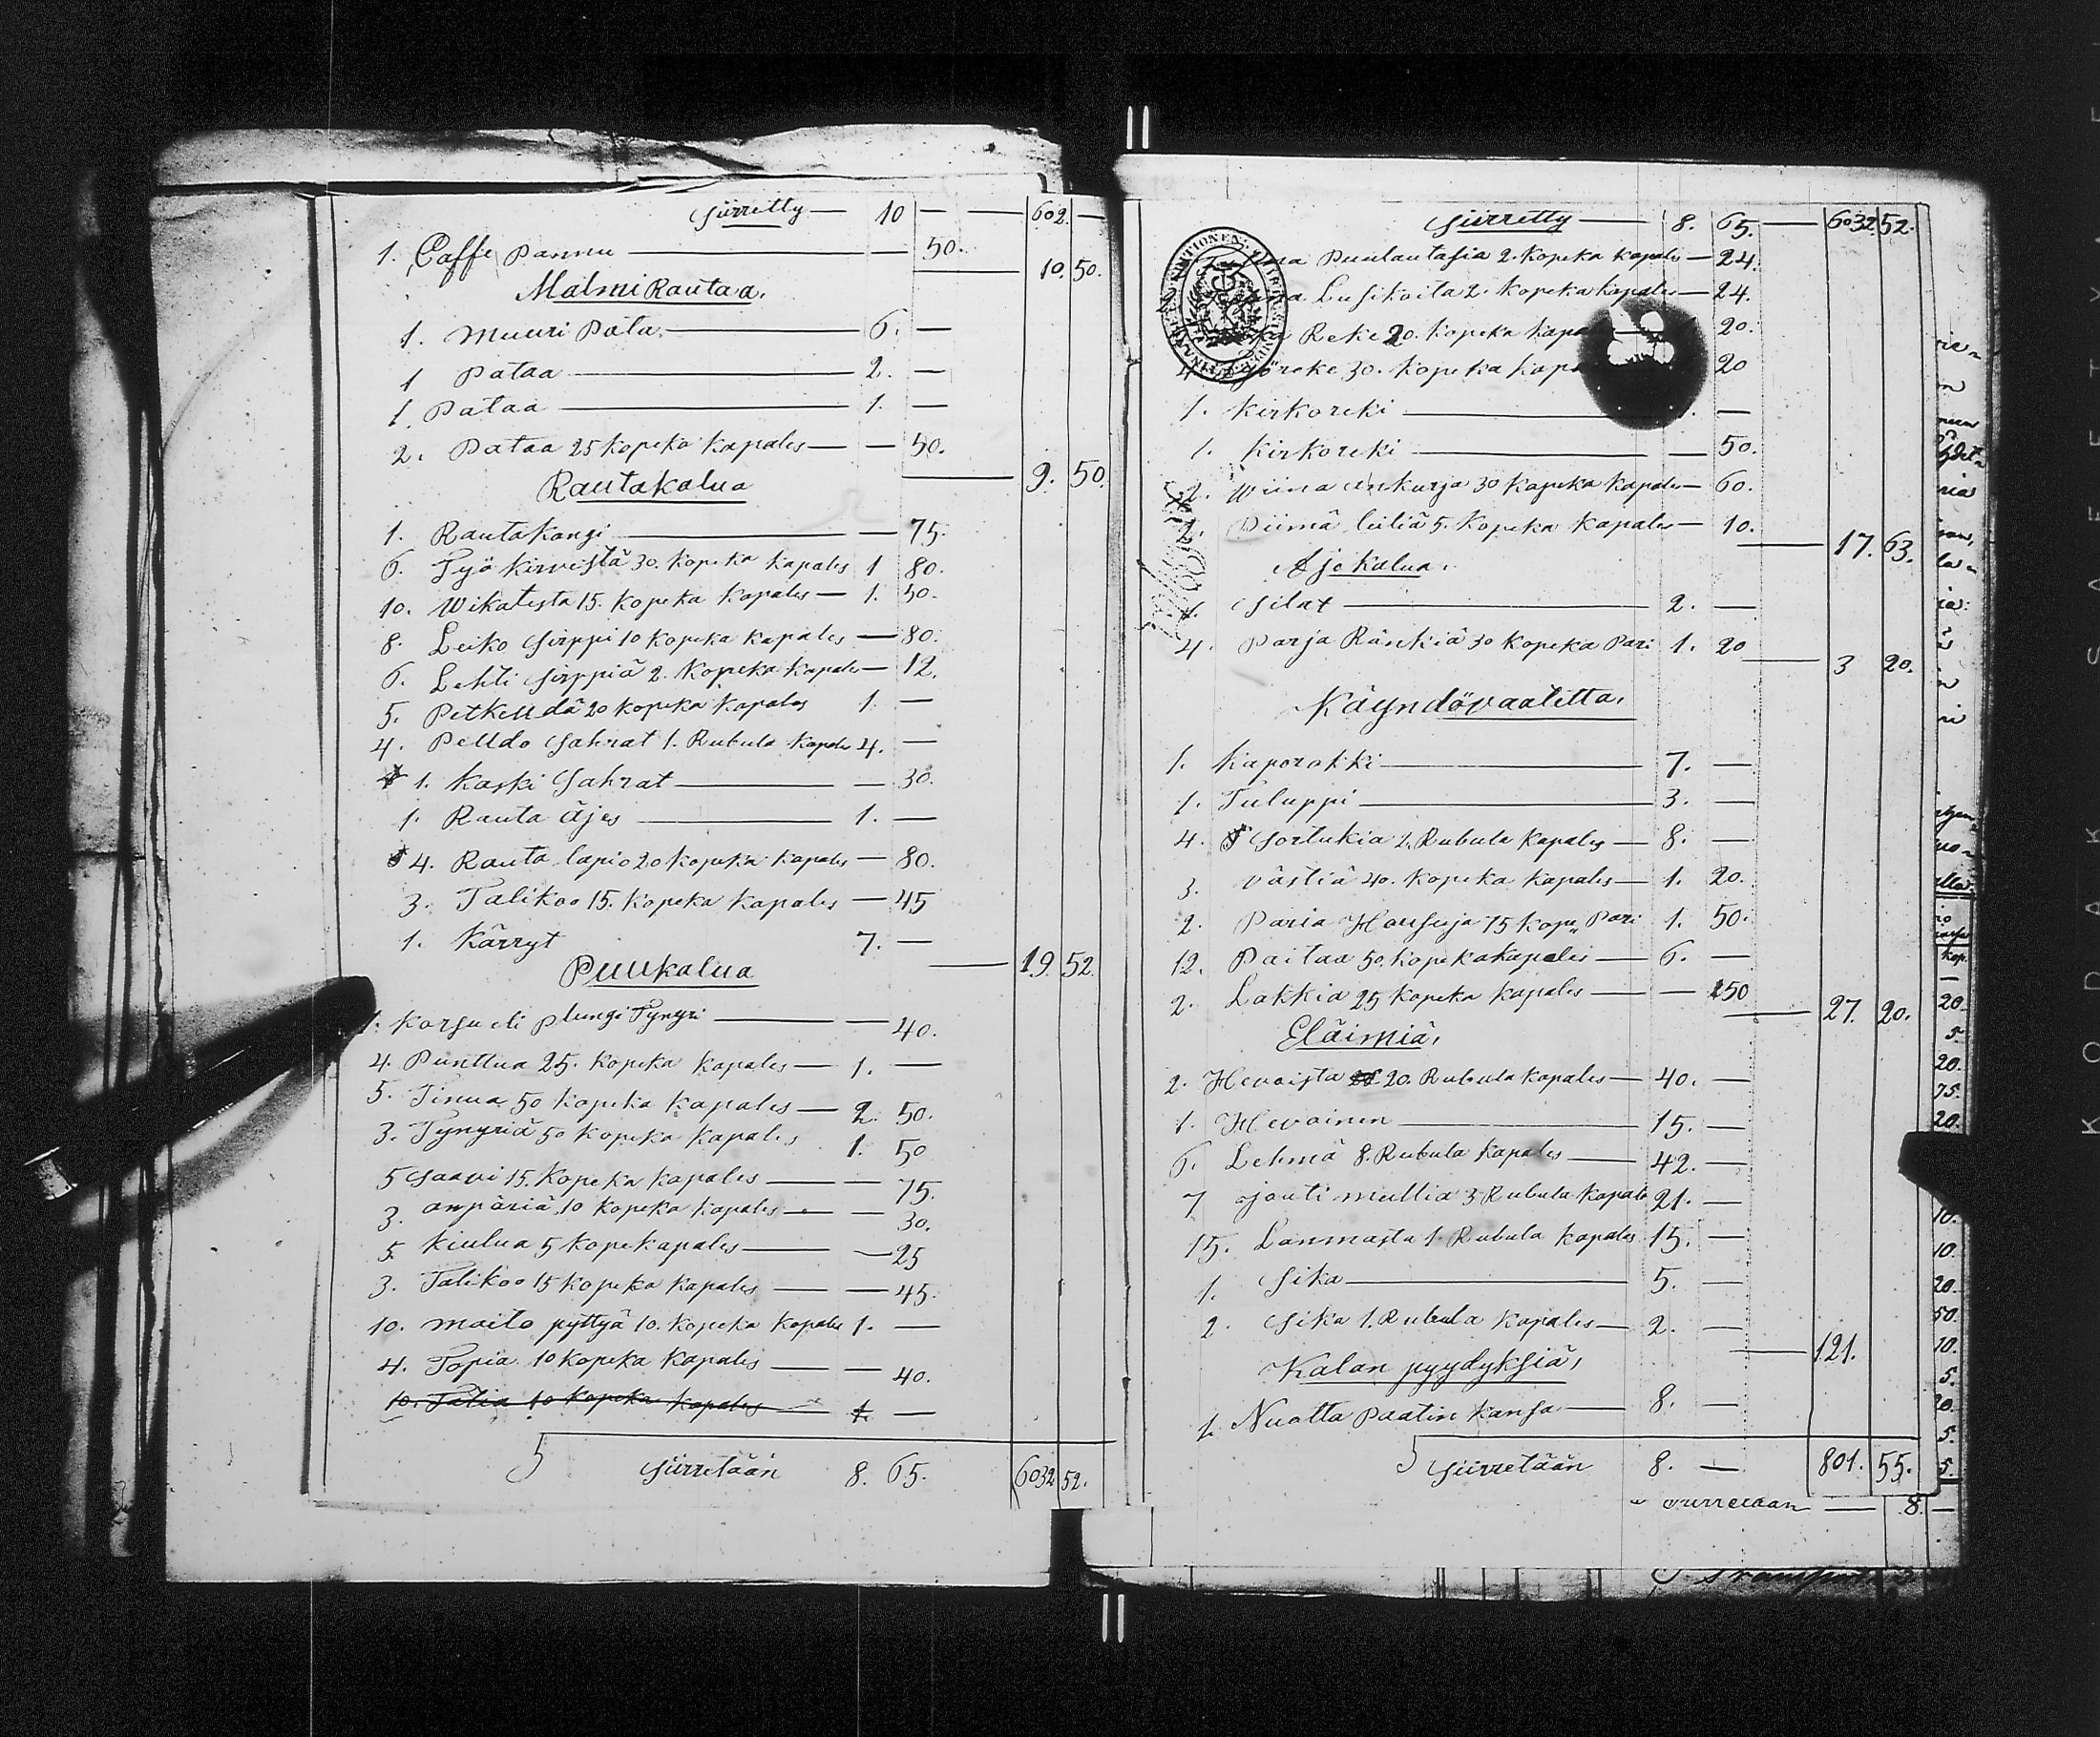 Siirretty — 10 — — 602. —
1. Caffe Pannu — — 50.
— 10. 50.
Malmi Rautaa.
1. Muuri Pata — 6. —
1 Pataa — 2. —
1. Pataa — 1. —
2. Pataa 25 Kopeka Kapales — — 50.
— 9. 50.
Rautakalua
1. Rautakangi — — 75.
6. Työ Kirvestä 30. Kopeka Kapales 1 80.
10. Wikatesta 15. Kopeka Kapales — 1. 50.
8. Leiko Sirppi 10 Kopeka Kapales — 80.
6. Lehti Sirppiä 2. Kopeka Kapales — 12.
5. Petkellda 20 Kopeka Kapales 1. —
4. Pelldo Sahrat 1. Rubula Kapales 4. —
1. Kaski Sahrat — — 30.
1. Rauta äjes — 1. —
4. Rauta lapio 20 Kopeka Kapales — 80.
3. Talikoo 15. Kopeka Kapales — 45
1. Kärryt 7. —
— 19. 52.
Puukalua
1. Korsu eli Plungi Tynyri — — 40.
4. Punttua 25. Kopeka Kapales — 1. —
5. Tinua 50 Kopeka Kapales — 2. 50.
3. Tynyriä 50 Kopeka Kapales 1. 50
5 Saavi 15. Kopeka Kapales — — 75.
3. ampäriä 10 Kopeka Kapales — — 30.
5. Kiulua 5 Kopekapales — — 25
3. Talikoo 15 Kopeka Kapales — — 45.
10. maito pyttyä 10. Kopeka Kapales 1. —
4. Topia 10 Kopeka Kapales — — 40.
10. Talia 10 Kopeka Kapales — 1. —
Siirretään 8. 65. 6032 52.
Siirretty — 8. 65. — 6032 52.
Puulautasia 2. Kopeka Kapales — 24.
Lusikoita 2. Kopeka Kapales — 24.
Reke 20. Kopeka 20.
4. Työreke 30. Kopeka 20
1. Kirkoreki — —
1. Kirkoreki — — 50.
2. Wiina ankurja 30 Kopeka Kapales — 60.
2. Piimä leiliä 5. Kopeka Kapales — 10.
— 17. 63.
Ajokalua.
Silat — 2. —
4. Parja Ränkiä 30 Kopeka Pari 1. 20
— 3 20.
Käyndövaatetta.
1. Kaporokki — 7. —
1. Tuluppi — 3. —
4. Sortukia 2. Rubula Kapales — 8. —
3. västiä 40. Kopeka Kapales — 1. 20.
2. Paria Housuja 75 Kop„ Pari 1. 50.
12. Paitaa 50. Kopeka Kapales — 6. —
2. Lakkia 25 Kopeka Kapales — — 50
— 27. 20.
Eläimiä.
2. Hevoista 20. Rubula Kapales — 40. —
1. Hevoinen — 15. —
6. Lehmä 8. Rubula Kapales — 42. —
7 jouti mullia 3 Rubula Kapales 21. —
15. Lanmasta 1. Rubula Kapales 15. —
1. Sika — 5. —
2. Sika 1. Rubula Kapales — 2. —
— 121.
Kalan pyydyksiä,
1. Nuotta Paatin Kansa — 8. —
Siirretään 8. — 801. 55.
Siirretään — 8. —
KODAK SAFETY